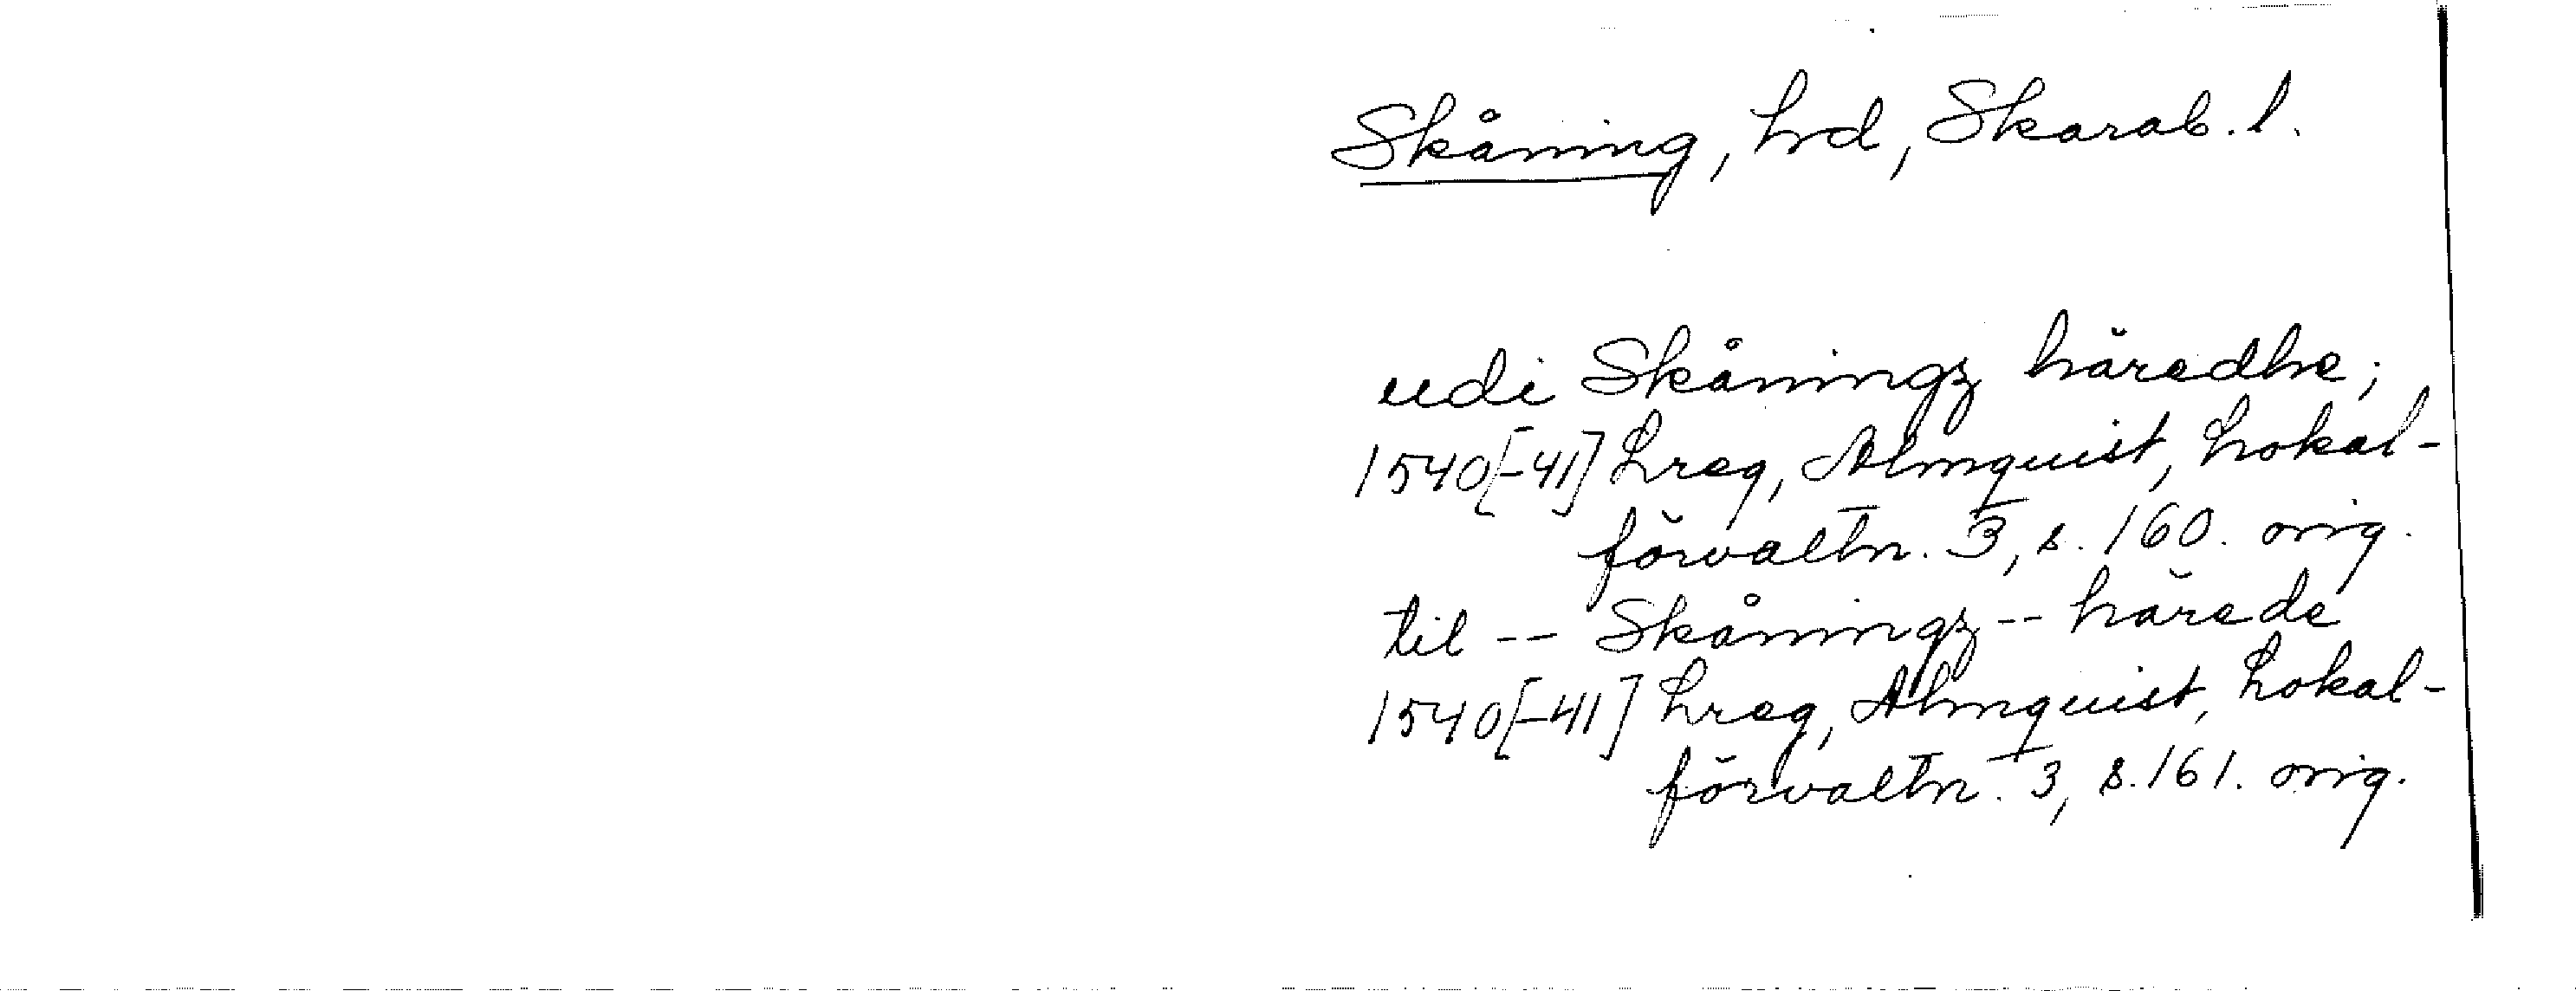 Skåning, hd, Skarab. l.
udi Skåningz häredhe;
1540[-41] Lreg, Almquist, Lokal-
förvaltn. 3, s. 160. orig.
til -- Skåningz -- härede
1540[-41] Lreg, Almquist, Lokal-
förvaltn. 3, s. 161. orig.